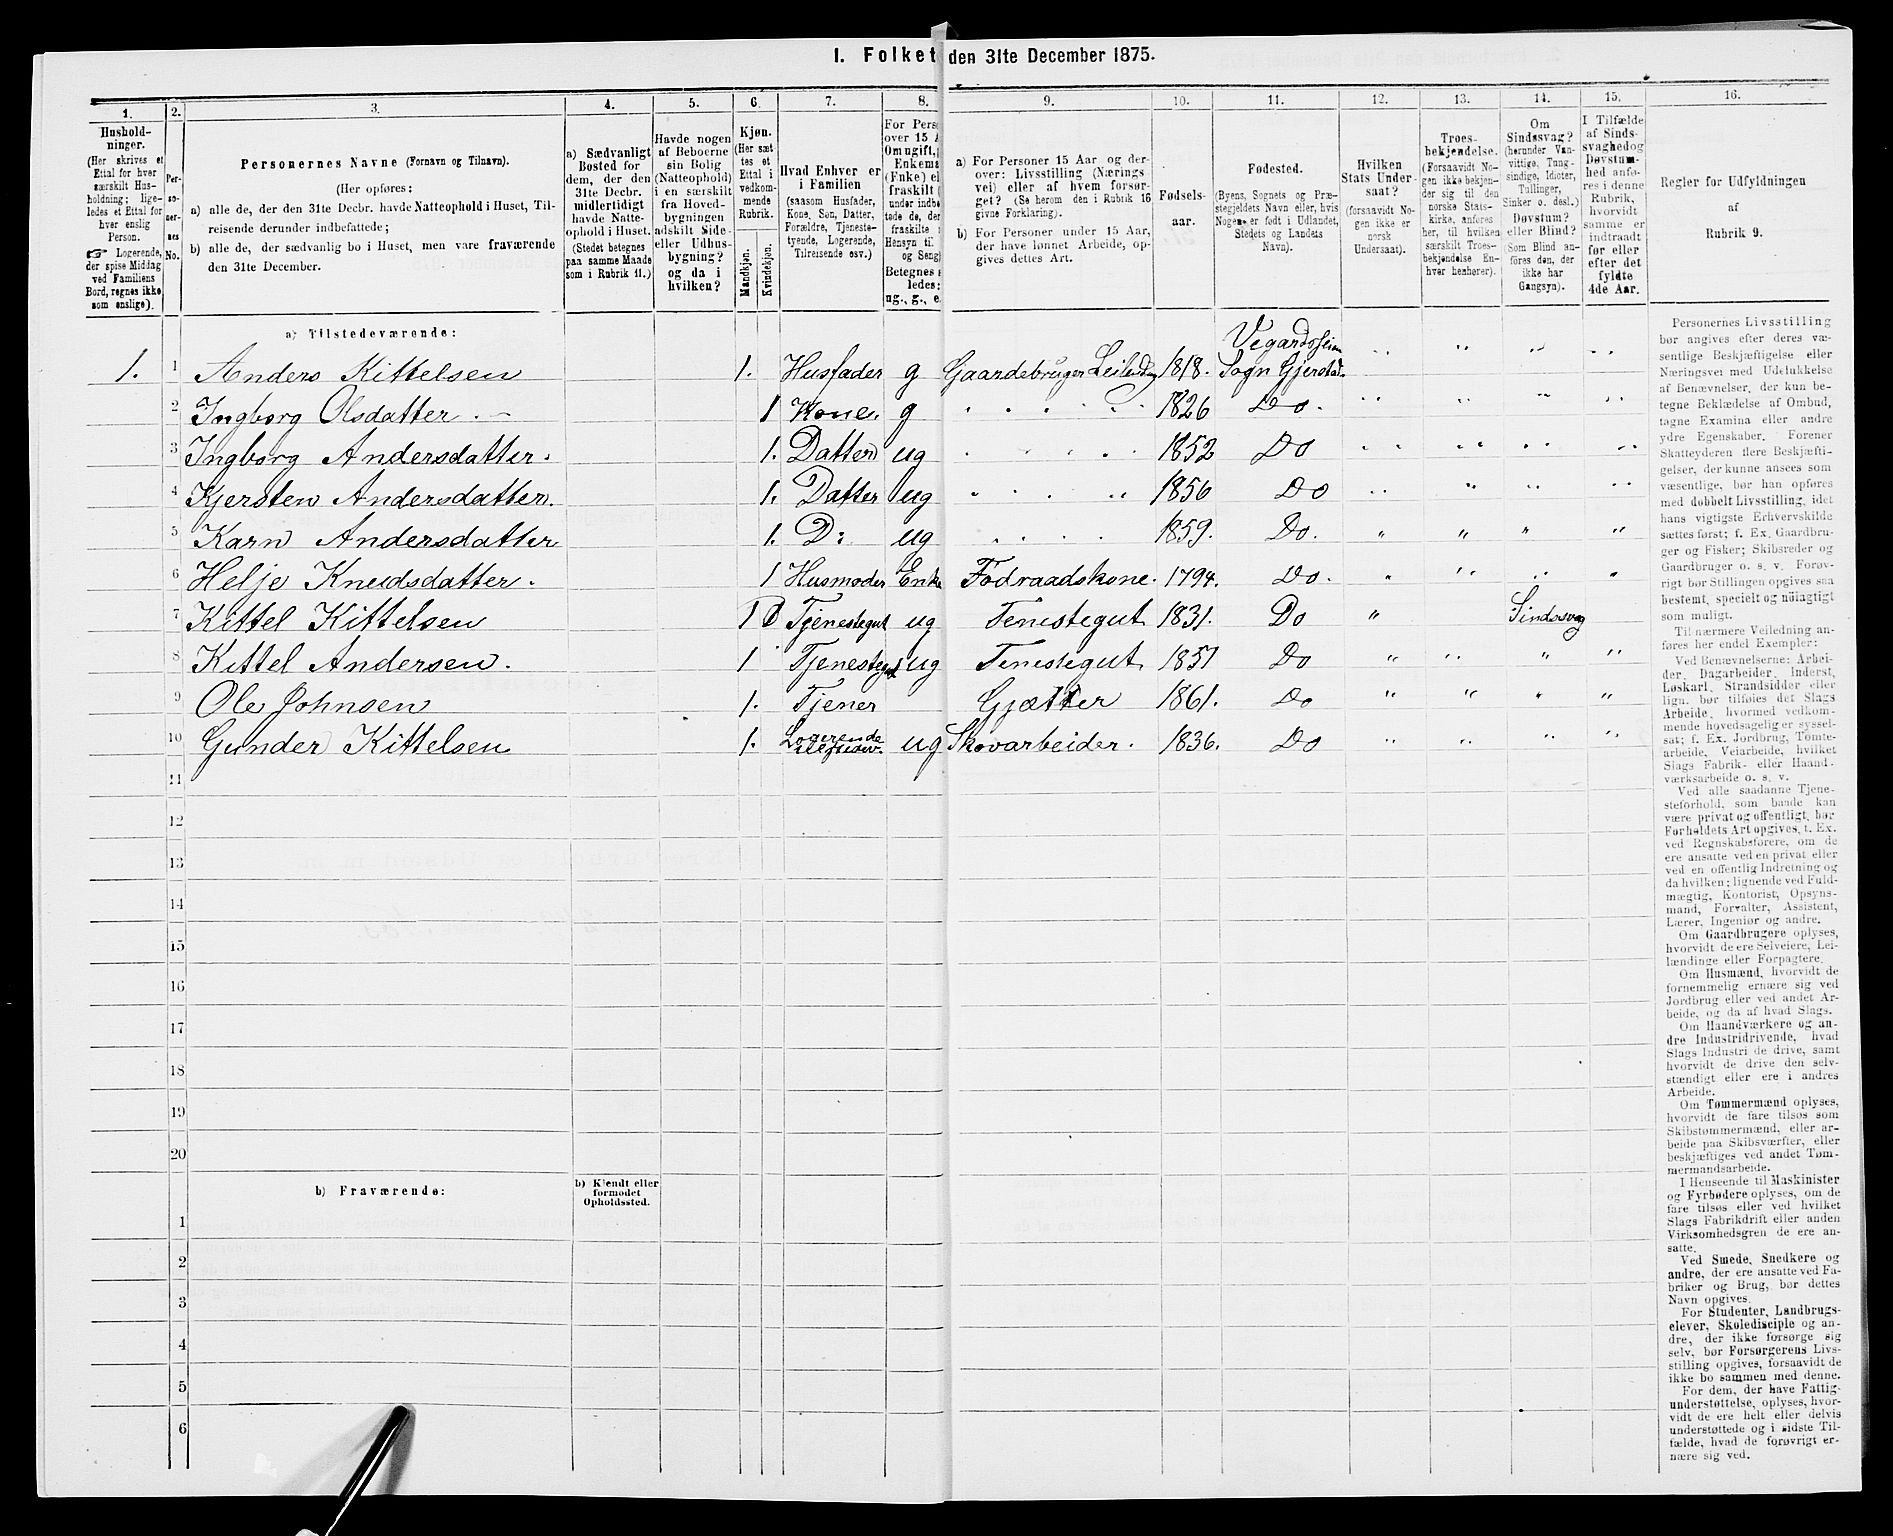 1. Folket den 31te December 1875.
1. 2. 3. 4. 5. 6. 7. 8. 9. 10. 11. 12. 13. 14. 15. 16.
Hushold-
ninger.
(Her skrives et
Ettal for hver
særskilt Hus-
holdning; lige-
ledes et Ettal for
hver enslig
Person.
☞ Logerende,
der spise Middag
ved Familiens
Bord, regnes ikke
som enslige).
Per-
so-
ner-
nes
No.
Personernes Navne (Fornavn og Tilnavn).
(Her opføres:
a) alle de, der den 31te Decbr. havde Natteophold i Huset, Til-
reisende derunder indbefattede;
b) alle de, der sædvanlig bo i Huset, men vare fraværende
den 31te December.
a) Sædvanligt
Bosted for
dem, der den
31te Decbr.
midlertidigt
havde Natte-
ophold i Huset.
(Stedet betegnes
paa samme Maade
som i Rubrik 11.)
Havde nogen
af Beboerne
sin Bolig
(Natteophold)
i en særskilt
fra Hoved-
bygningen
adskilt Side-
eller Udhus-
bygning?
og da i
hvilken?
Kjøn.
(Her sæt-
tes et
Ettal i
vedkom-
mende
Rubrik.
Mandkjøn.
Kvindekjøn.
Hvad Enhver er
i Familien
(saasom Husfader,
Kone, Søn, Datter,
Forældre, Tjeneste-
tyende, Logerende,
Tilreisende osv.)
For Pers
over 15 A
Om ugift,
Enkema
(Enke) el
fraskilt (
under indbe
tade de, der
fraskilte
Hensyn til
og Seng)
Betegnes s
ledes:
ug., g., e.
a) For Personer 15 Aar og der-
over: Livsstilling (Nærings
vei) eller af hvem forsør-
get? (Se herom den i Rubrik 16
givne Forklaring).
b) For Personer under 15 Aar,
der have lønnet Arbeide, op-
gives dettes Art.
Fødsels-
aar.
Fødested.
(Byens, Sognets og Præ-
stegjeldets Navn eller, hvis
Nogen er født i Udlandet,
Stedets og Landets
Navn).
Hvilken
Stats Under-
saat?
(forsaavidt No-
gen ikke er
norsk
Undersaat).
Troes-
bekjendelse.
(Forsaavidt No-
gen ikke bekjen-
der sig til den
norske Stats-
kirke, anføres
her, til hvilken
særskilt Troes-
bekjendelse En-
hver henhører).
Om
Sindssvag?
(herunder Van-
vittige, Tung-
sindige, Idioter,
Tullinger,
Sinker o. desl.)
Døvstum?
eller Blind?
(Som Blind an-
føres den, der
ikke har
Gangsyn).
I Tilfælde
af Sinds-
svaghed og
Døvstum-
hed anfø-
res i denne
Rubrik,
hvorvidt
samme er
indtraadt
før eller
efter det
fyldte
4de Aar.
Regler for Udfyldningen
af
Rubrik 9.
a) Tilstedeværende:
1. 1 Anders Kittelsen 1. Husfader g Gaardebruger 1818. Vegardsheim Sogn Gjerstad
2 Ingborg Olsdatter 1 Kone g " " " " 1826 Do.
3 Ingborg Andersdatter. 1. Datter ug " " " 1852 Do
4 Kjersten Andersdatter. 1. Datter ug " " " 1856 Do
5 Karn Andersdatter 1. D: ug " " " 1859. Do.
6 Helje Knudsdatter. 1 Husmoder Enke Fødraadskone. 1794. Do.
7 Kittel Kittelsen 1 Tjenestegut ug Tenestegut 1831. Do " Sindssvag
8 Kittel Andersen. 1 Tjenestegut ug Tenestegut 1851 Do " " " "
9 Ole Johnsen 1. Tjener Gjætter 1861. Do " " " "
10 Gunder Kittelsen 1. Logerende ug Skovarbeider. 1836. Do " " " "
11
12
13
14
15
16
17
18
19
20
b) Fraværende:
b) Kjendt eller
formodet
Opholdssted.
1
2
3
4
5
6
Personernes Livsstilling
bør angives efter deres væ-
sentlige Beskjæftigelse eller
Næringsvei med Udelukkelse
af Benævnelser, der kun be-
tegne Beklædelse af Ombud,
tagne Examina eller andre
ydre Egenskaber. Forener
Skatteyderen flere Beskjæfti-
gelser, der kunne ansees som
væsentlige, bør han opføres
med dobbelt Livsstilling, idet
hans vigtigste Erhvervskilde
sættes først; f. Ex. Gaardbru-
ger og Fisker; Skibsreder og
Gaardbruger o. s. v. Forøv-
rigt bør Stillingen opgives saa
bestemt, specielt og nøiagtigt
som muligt.
Til nærmere Veiledning an-
føres her endel Exempler:
Ved Benævnelserne: Arbei-
der, Dagarbeider, Inderst,
Løskarl, Strandsidder eller
lign. bør tilføies det Slags
Arbeide, hvormed vedkom-
mende hovedsagelig er syssel-
sat; f. Ex. Jordbrug, Tømte-
arbeide, Veiarbeide, hvilket
Slags Fabrik- eller Haand-
værksarbeide o. s. v.
Ved alle saadanne Tjene-
steforhold, som baade kan
være privat og offentligt, bør
Forholdets Art opgives, t. Ex.
ved Regnskabsførere, om de
ere ansatte ved en privat eller
ved en offentlig Indretning og
da hvilken; lignende ved Fuld-
mægtig, Kontorist, Opsyns-
mand, Forvalter, Assistent,
Lærer, Ingeniør og andre.
Om Gaardbrugere oplyses,
hvorvidt de ere Selveiere, Lei-
lændinge eller Forpagtere.
Om Husmænd, hvorvidt de
fornemmelig ernære sig ved
Jordbrug eller ved andet Ar-
beide, og da af hvad Slags.
Om Haandværkere og an-
dre Industridrivende, hvad
Slags Industri de drive, samt
hvorvidt de drive den selv-
stændigt eller ere i andres
Arbeide.
Om Tømmermænd oplyses,
hvorvidt de fare tilsøs som
Skibstømmermænd, eller ar-
beide paa Skibsværfter, eller
beskjæftiges ved andet Tøm-
mermandsarbeide.
I Henseende til Maskinister
og Fyrbødere oplyses, om de
fare tilsøs eller ved hvilket
Slags Fabrikdrift eller anden
Virksomhedsgren de ere an-
satte.
Ved Smede, Snedkere og
andre, der ere ansatte ved Fa-
briker og Brug, bør dettes
Navn opgives.
For Studenter, Landbrugs-
elever, Skoledisciple og an-
dre, der ikke forsørge sig
selv, bør Forsørgerens Livs-
stilling opgives, forsaavidt de
ikke bo sammen med denne.
For dem, der have Fattig-
understøttelse, oplyses, hvor-
vidt de ere helt eller delvis
understøttede og i sidste Til-
fælde, hvad de forøvrigt er-
nære sig ved.